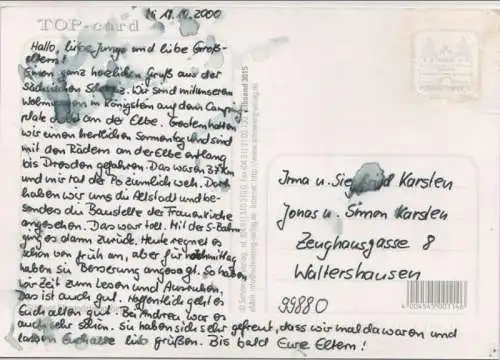 Mi 11.10.2000
TOP-card
Hallo, liebe Jungs und liebe Groß-
eltern!
Einen ganz herzlichen Gruß aus der
Sächsischen Schweiz. Wir sind mit unserem
Wohnwagen in Königstein auf dem Camping
platz an der Elbe. Gestern hatten
wir einen herrlichen Sonnentag und sind
mit den Rädern an der Elbe entlang
bis Dresden gefahren. Das waren 37 km
und mir tat der Po ziemlich weh. Dort
haben wir uns die Altstadt und be-
sonders die Baustelle der Frauenkirche
angesehen. Das war toll. Mit der S-Bahn
ging es dann zurück. Heute regnet es
schon von früh an, aber für nachmittag
haben sie Besserung angesagt. So haben
wir Zeit zum Lesen und Ausruhen.
Das ist auch gut. Hoffentlich geht es
Euch allen gut. Bei Andrea war es
auch sehr schön. Sie haben sich sehr gefreut, dass wir mal da waren und
lassen Euch alle lieb grüßen. Bis bald Eure Eltern!
Bildband 3015
Irma u. Siegfried Karsten
Jonas u. Simon Karsten
Zeughausgasse 8
Waltershausen
99880
4 004545 001146